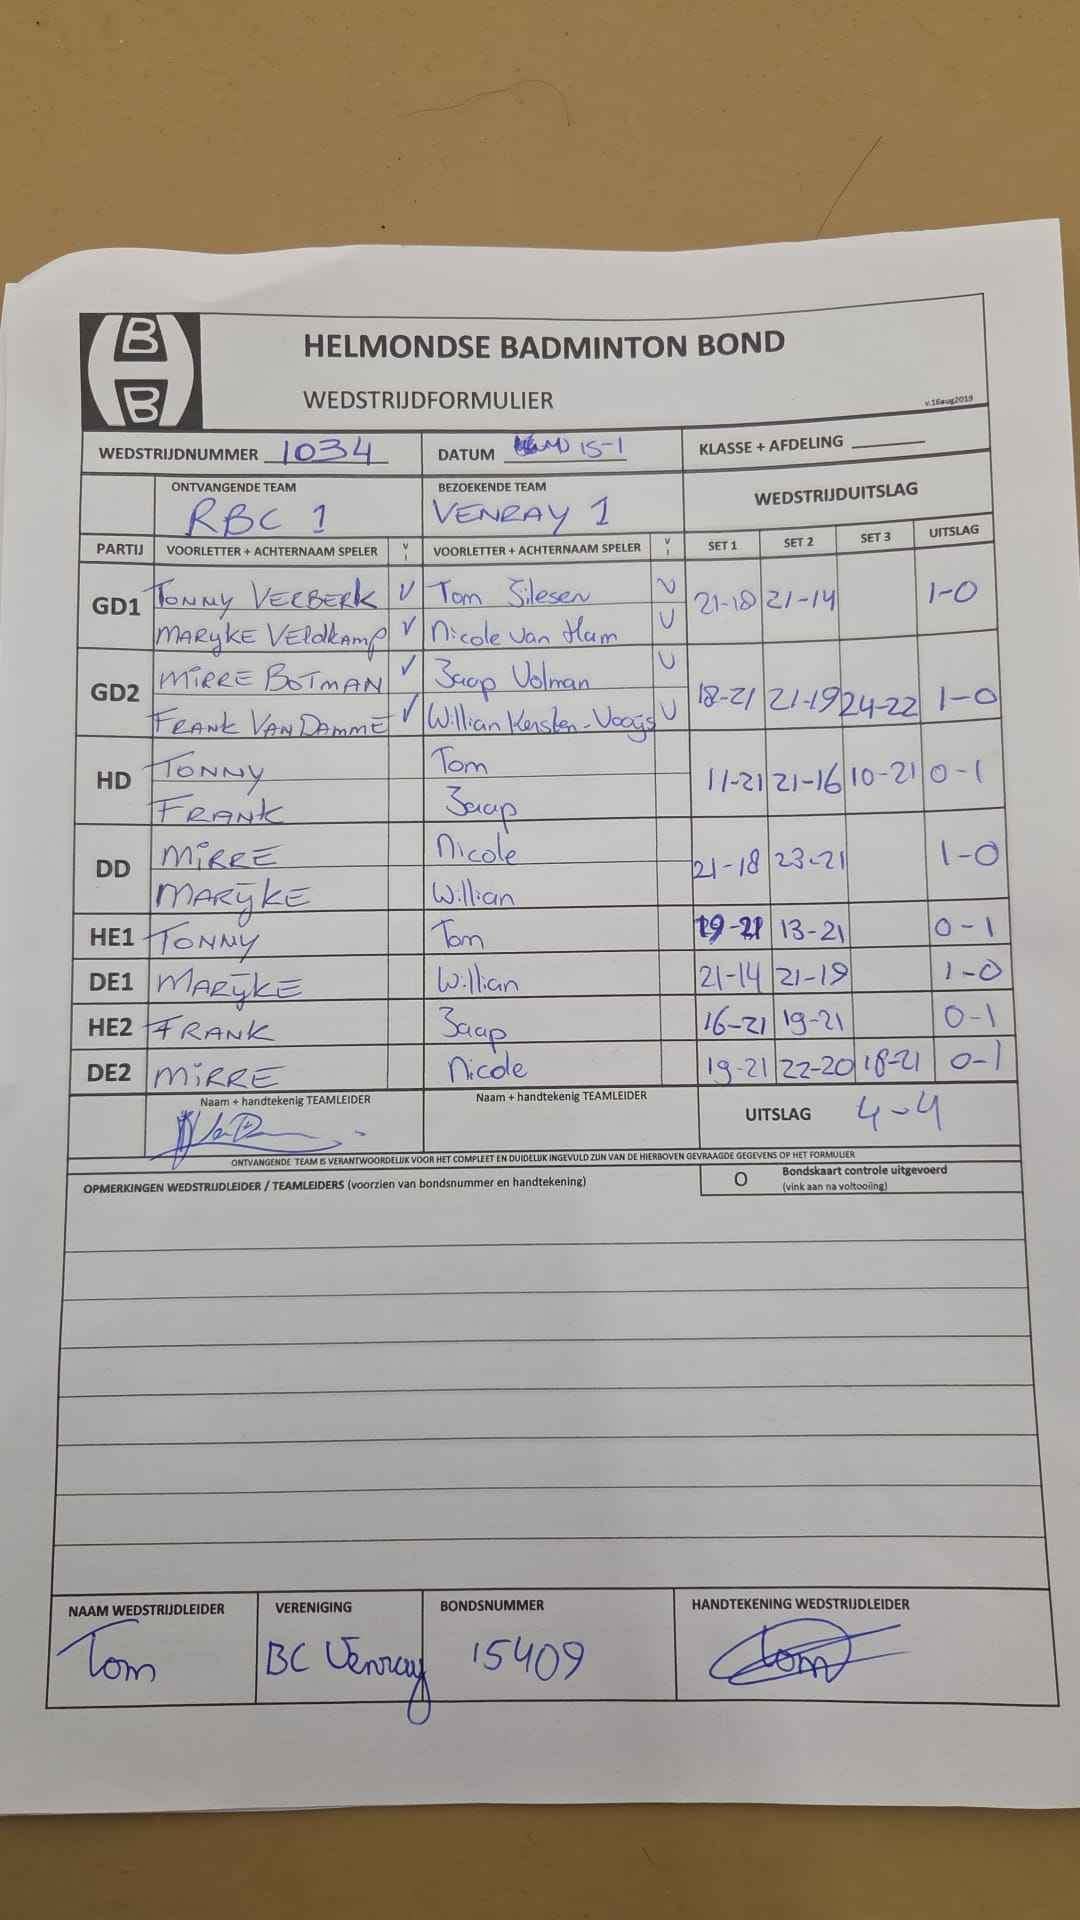 B
B
HELMONDSE BADMINTON BOND
WEDSTRIJDFORMULIER
v.16aug2019
WEDSTRIJDNUMMER 1034 DATUM 15-1 KLASSE + AFDELING
ONTVANGENDE TEAM BEZOEKENDE TEAM WEDSTRIJDUITSLAG
RBC 1 VENRAY 1
PARTIJ VOORLETTER + ACHTERNAAM SPELER V I VOORLETTER + ACHTERNAAM SPELER V I SET 1 SET 2 SET 3 UITSLAG
GD1 TONNY VERBERK V Tom Silesen V 21-18 21-14 1-0
MARYKE VELDKAMP V Nicole van Ham V
GD2 MIRRE BOTMAN V Jaap Volman V 18-21 21-19 24-22 1-0
FRANK VAN DAMME V Willian Kersten-Vooijs V
HD TONNY Tom 11-21 21-16 10-21 0-1
FRANK Jaap
DD MIRRE Nicole 21-18 23-21 1-0
MARYKE Willian
HE1 TONNY Tom 19-21 13-21 0-1
DE1 MARYKE Willian 21-14 21-19 1-0
HE2 FRANK Jaap 16-21 19-21 0-1
DE2 MIRRE Nicole 19-21 22-20 18-21 0-1
Naam + handtekenig TEAMLEIDER Naam + handtekenig TEAMLEIDER UITSLAG 4-4
ONTVANGENDE TEAM IS VERANTWOORDELIJK VOOR HET COMPLEET EN DUIDELIJK INGEVULD ZIJN VAN DE HIERBOVEN GEVRAAGDE GEGEVENS OP HET FORMULIER
OPMERKINGEN WEDSTRIJDLEIDER / TEAMLEIDERS (voorzien van bondsnummer en handtekening) O Bondskaart controle uitgevoerd
(vink aan na voltooiing)
NAAM WEDSTRIJDLEIDER VERENIGING BONDSNUMMER HANDTEKENING WEDSTRIJDLEIDER
Tom BC Venray 15409 Tom